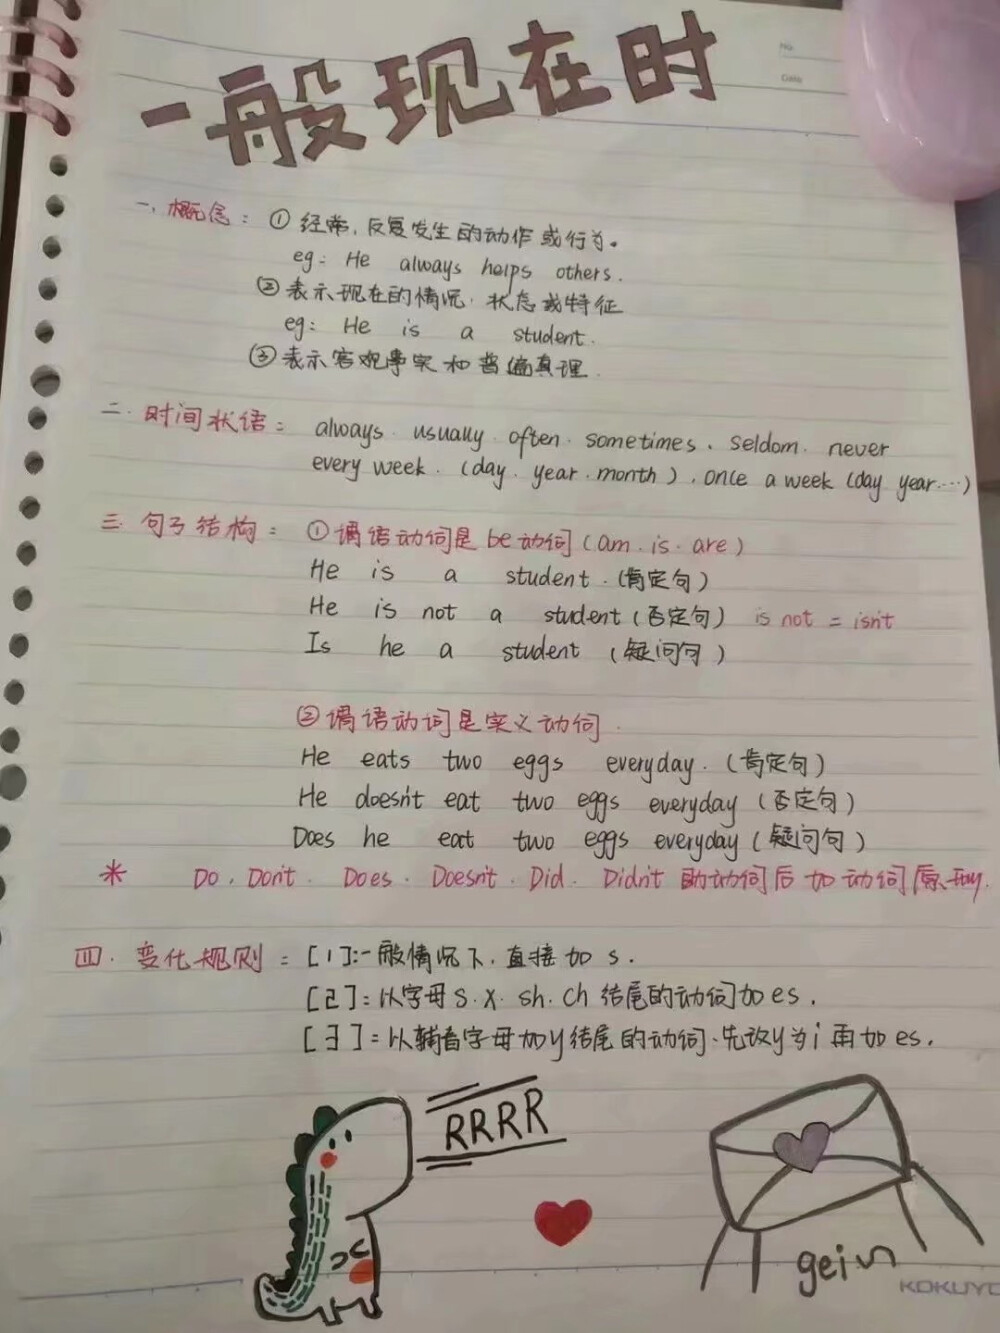 一般现在时
No.
Date
一、概念：① 经常，反复发生的动作或行为。
eg: He always helps others.
② 表示现在的情况，状态或特征
eg: He is a student.
③ 表示客观事实和普遍真理.
二. 时间状语： always . usually . often . sometimes . seldom . never
every week . (day . year . month) . once a week (day year...)
三. 句子结构： ① 谓语动词是be动词 (am . is . are)
He is a student. (肯定句)
He is not a student (否定句) is not = isn't
Is he a student (疑问句)
② 谓语动词是实义动词.
He eats two eggs everyday. (肯定句)
He doesn't eat two eggs everyday (否定句)
Does he eat two eggs everyday (疑问句)
* Do . Don't . Does . Doesn't . Did . Didn't 助动词后加动词原形.
四. 变化规则：[1]:一般情况下, 直接加 s.
[2]: 以字母 s. x. sh. ch 结尾的动词加es.
[3]: 以辅音字母加y结尾的动词、先改y为i再加es.
RRRR
gei
KOKUYO